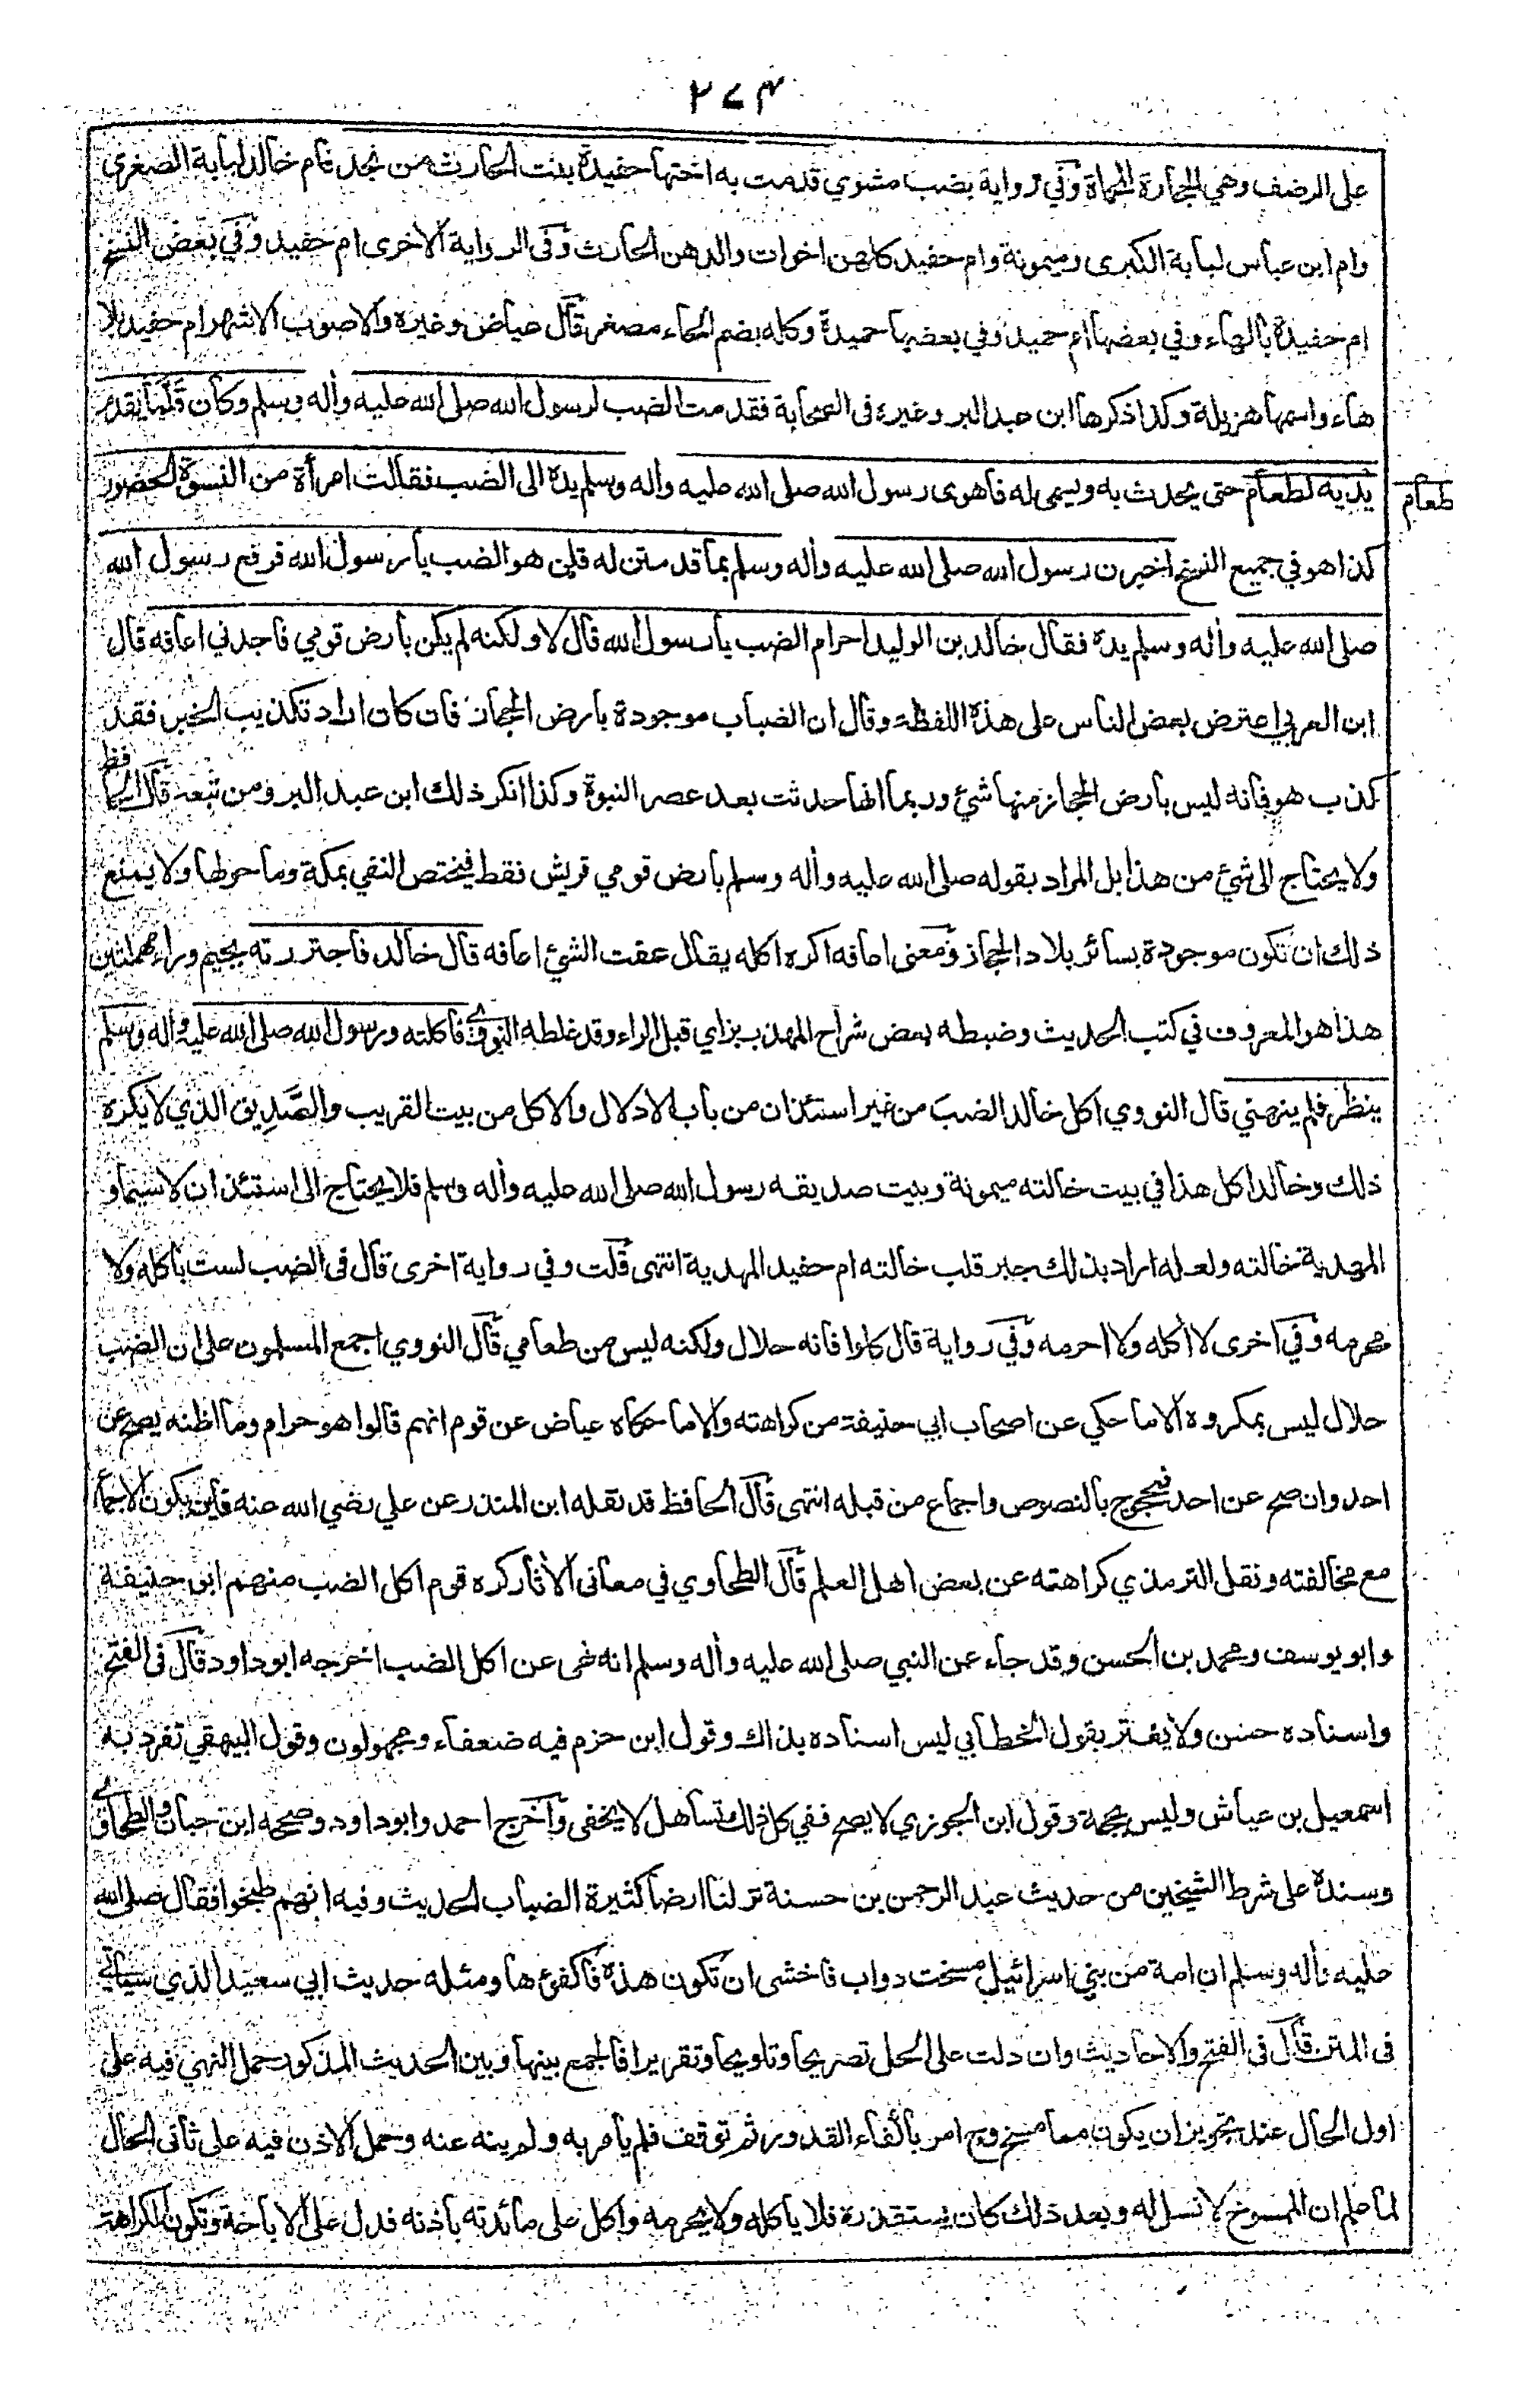 ٢٧٤
على الرضف وهي الحجارة المحماة وفي رواية بضب مشوي قدمت به اختها حفيدة بنت الحارث من نجد فام خالد لبابة الصغرى
وام ابن عباس لبابة الكبرى وميمونة وام حفيد كلهن اخوات والدهن الحارث وفى الرواية الاخرى ام حفيد وفي بعض النسخ
ام حفيدة بالهاء وفي بعضها ام حميد وفي بعضها حميدة وكله بضم الحاء مصغر قال عياض وغيره والاصوب الاشهر ام حفيد بلا
هاء واسمها هزيلة وكذا ذكرها ابن عبد البر وغيره فى الصحابة فقدمت الضب لرسول الله صلى الله عليه وأله وسلم وكان قلما يقدم
يديه لطعام حتى يحدث به ويسمى له فاهوى رسول الله صلى الله عليه وأله وسلم يده الى الضب فقالت امرأة من النسوة الحضور
طعام
كذا هو في جميع النسخ اخبرن رسول الله صلى الله عليه وأله وسلم بما قدمتن له قلن هو الضب يا رسول الله فرفع رسول الله
صلى الله عليه وأله وسلم يده فقال خالد بن الوليد احرام الضب يا رسول الله قال لا ولكنه لم يكن بارض قومي فاجدني اعافه قال
ابن العربي اعترض بعض الناس على هذه اللفظة وقال ان الضباب موجودة بارض الحجاز فان كان اراد تكذيب الخبر فقد
كذب هو فانه ليس بارض الحجاز منها شئ وربما انها حدثت بعد عصر النبوة وكذا انكر ذلك ابن عبد البر ومن تبعه قال الحافظ
ولا يحتاج الى شئ من هذا بل المراد بقوله صلى الله عليه وأله وسلم بارض قومي قريش فقط فيختص النفي بمكة وما حولها ولا يمنع
ذلك ان تكون موجودة بسائر بلاد الحجاز ومعنى اعافه اكره اكله يقال عفت الشئ اعافه قال خالد فاجتررته بجيم وراء مهملتين
هذا هو المعروف في كتب الحديث وضبطه بعض شراح المهذب بزاي قبل الراء وقد غلطه النووي فاكلته ورسول الله صلى الله عليه وأله وسلم
ينظر فلم ينهني قال النووي اكل خالد الضب من غير استئذان من باب الادلال والاكل من بيت القريب والصديق الذي لا يكره
ذلك وخالد اكل هذا في بيت خالته ميمونة وبيت صديقه رسول الله صلى الله عليه وأله وسلم فلا يحتاج الى استئذان لا سيما و
المهدية خالته ولعله اراد بذلك جبر قلب خالته ام حفيد المهدية انتهى قلت وفي رواية اخرى قال فى الضب لست باكله ولا
محرمه وفي اخرى لا أكله ولا احرمه وفي رواية قال كلوا فانه حلال ولكنه ليس من طعامي قال النووي اجمع المسلمون على ان الضب
حلال ليس بمكروه الا ما حكي عن اصحاب ابي حنيفة من كراهته والا ما حكاه عياض عن قوم انهم قالوا هو حرام وما اظنه يصح عن
احد وان صح عن احد فمحجوج بالنصوص واجماع من قبله انتهى قال الحافظ قد نقله ابن المنذر عن علي رضي الله عنه فاين يكون الاجماع
مع مخالفته ونقل الترمذي كراهته عن بعض اهل العلم قال الطحاوي في معانى الأثار كره قوم اكل الضب منهم ابو حنيفة
وابو يوسف ومحمد بن الحسن وقد جاء عن النبي صلى الله عليه وأله وسلم انه نهى عن اكل الضب اخرجه ابو داود قال فى الفتح
واسناده حسن ولا يغتر بقول الخطابي ليس اسناده بذاك وقول ابن حزم فيه ضعفاء ومجهولون وقول البيهقي تفرد به
اسمعيل بن عياش وليس بحجة وقول ابن الجوزي لا يصح ففي كل ذلك تساهل لا يخفى واخرج احمد وابو داود وصححه ابن حبان والطحاوي
وسنده على شرط الشيخين من حديث عبد الرحمن بن حسنة نزلنا ارضا كثيرة الضباب الحديث وفيه انهم طبخوا فقال صلى الله
عليه وأله وسلم ان امة من بني اسرائيل مسخت دواب فاخشى ان تكون هذه فاكفئوها ومثله حديث ابي سعيد الذي سيأتي
فى المتن قال فى الفتح والاحاديث وان دلت على الحل تصريحا وتلويحا وتقريرا فالجمع بينها وبين الحديث المذكور حمل النهي فيه على
اول الحال عند تجويز ان يكون مما مسخ وح امر بالفاء القدور ثم توقف فلم يأمر به ولم ينه عنه وحمل الاذن فيه على ثانى الحال
لما علم ان الممسوخ لا نسل له وبعد ذلك كان يستقذره فلا يأكله ولا يحرمه واكل على مائدته باذنه فدل على الاباحة وتكون الكراهة